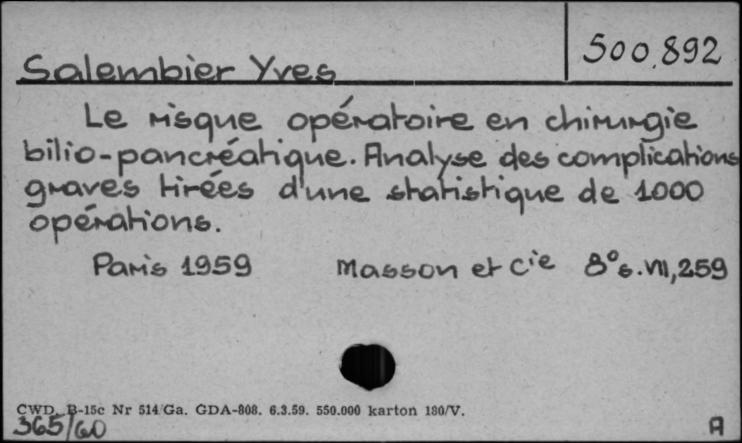 500.892
Salembier Yves
Le risque opératoire en chirurgie
bilio-pancréatique. Analyse des complications
graves tirées d'une statistique de 1000
opérations.
Paris 1959 Masson et Cie 8° s. VII, 259
CWD. B-15c Nr 514/Ga. GDA-808. 6.3.59. 550.000 karton 180/V.
365/60
A